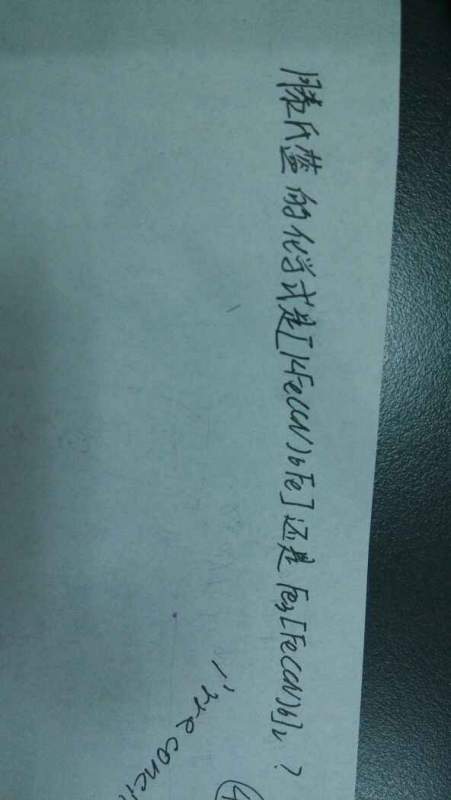 滕氏蓝的化学式是[KFe(CN)6Fe]还是Fe3[Fe(CN)6]2?